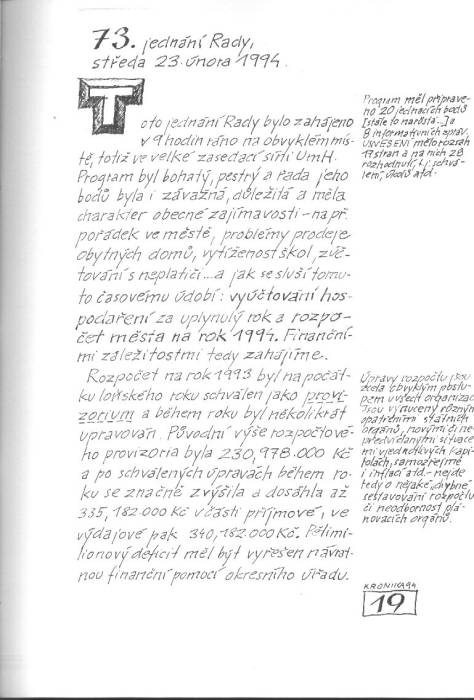 73. jednání Rady,
středa 23. února 1994.
Toto jednání Rady bylo zahájeno
v 9 hodin ráno na obvyklém mís-
tě, totiž ve velké zasedací síni ÚmH.
Program byl bohatý, pestrý a řada jeho
bodů byla i závažná, důležitá a měla
charakter obecné zajímavosti - např.
pořádek ve městě, problémy prodeje
obytných domů, vytíženost škol, zúč-
tování s neplatiči... a jak se sluší tomu-
to časovému údobí: vyúčtování hos-
podaření za uplynulý rok a rozpo-
čet města na rok 1994. Finanční-
mi záležitostmi tedy zahájíme.
Rozpočet na rok 1993 byl na počát-
ku loňského roku schválen jako prov-
izorium a během roku byl několikrát
upravován. Původní výše rozpočtové-
ho provizoria byla 230,978.000 Kč
a po schválených úpravách během ro-
ku se značně zvýšila a dosáhla až
335,182.000 Kč v části příjmové, ve
výdajové pak 340,182.000 Kč. Pětimi-
lionový deficit měl být vyřešen návrat-
nou finanční pomocí okresního úřadu.
Program měl připrave-
no 20 jednacích bodů
(stále to narůstá...) a
8 informativních zpráv.
USNESENÍ mělo rozsah
19 stran a na nich 28
rozhodnutí, t.j. schvá-
lení, úkolů atd.
Úpravy rozpočtu jsou
zcela obvyklým postu-
pem u všech organizací.
Jsou vynuceny různými
opatřeními státních
orgánů, novými či ne-
předvídanými situace-
mi v jednotlivých kapi-
tolách, samozřejmě
i inflací atd. - nejde
tedy o nějaké chybné
sestavování rozpočtu
či neodbornost plá-
novacích orgánů.
KRONIKA 94
19